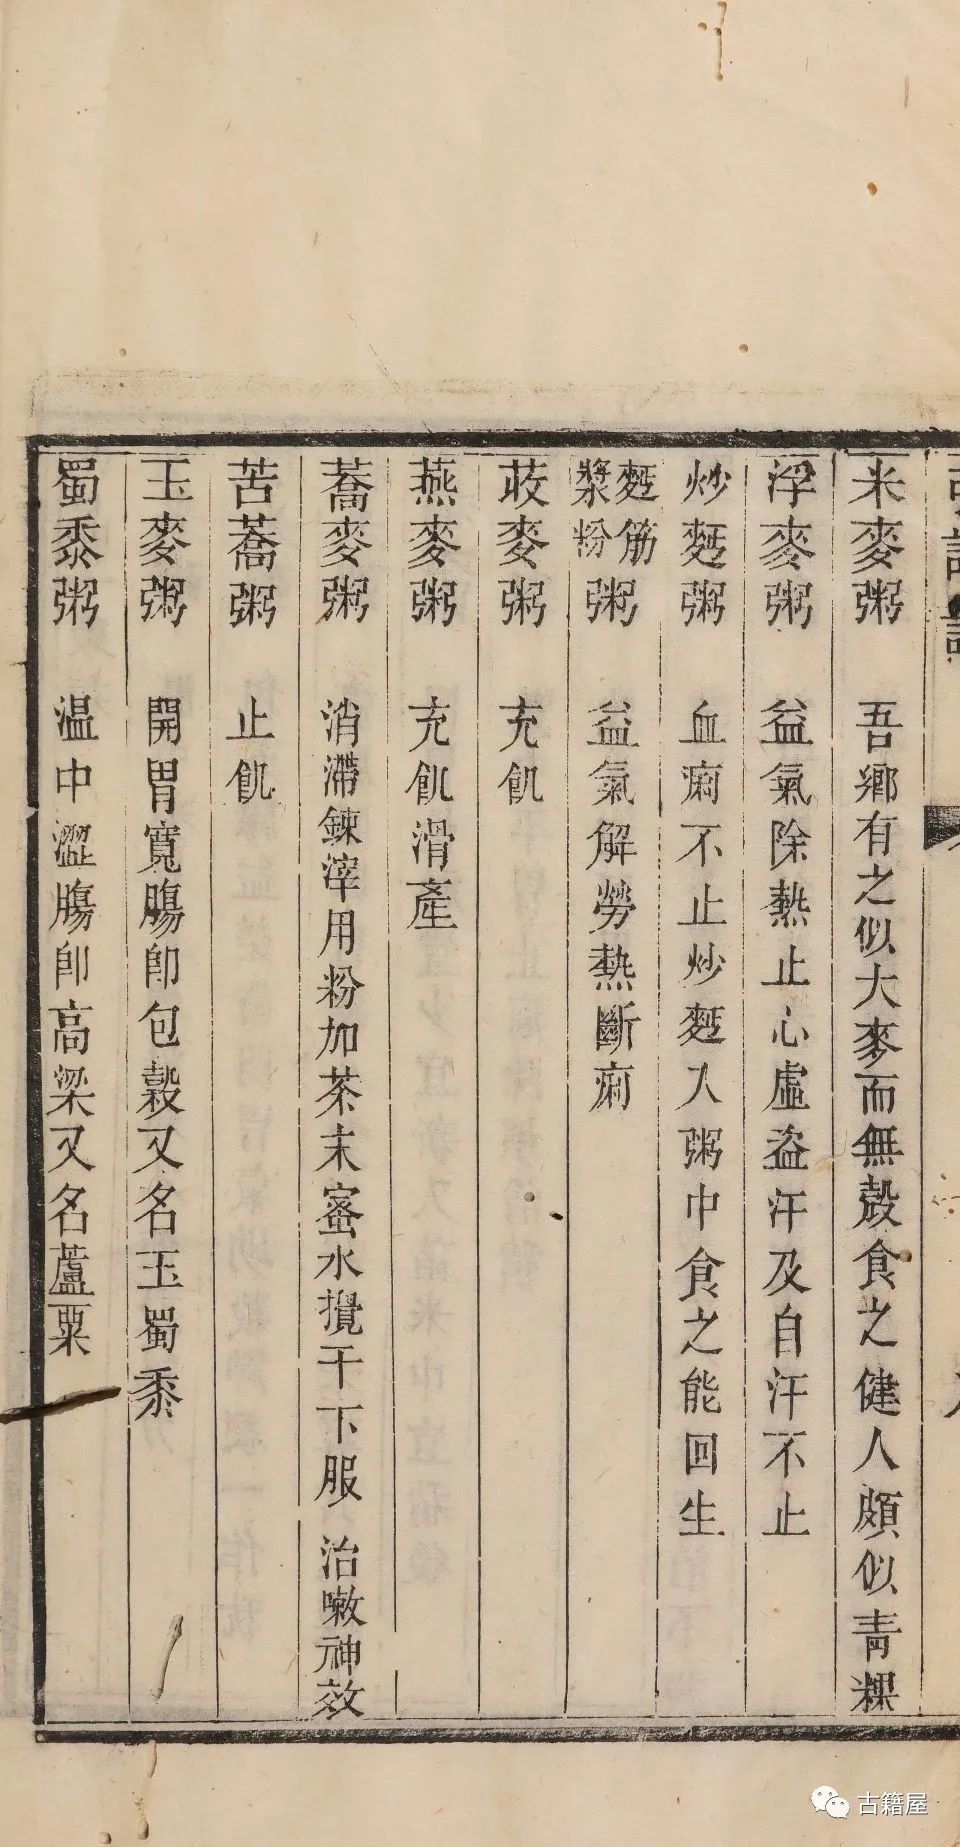 米麥粥　吾鄉有之似大麥而無殼食之健人頗似青粿
浮麥粥　益氣除熱止心虛盜汗及自汗不止
炒麪粥　血痢不止炒麪入粥中食之能回生
麪筋漿粉粥　益氣解勞熱斷痢
麥粥　充飢
燕麥粥　充飢滑產
蕎麥粥　消滯鍊滓用粉加茶末蜜水攪千下服　治嗽神效
苦蕎粥　止飢
玉麥粥　開胃寬腸卽包穀又名玉蜀黍
蜀黍粥　温中澀腸卽高梁又名蘆粟
古籍屋